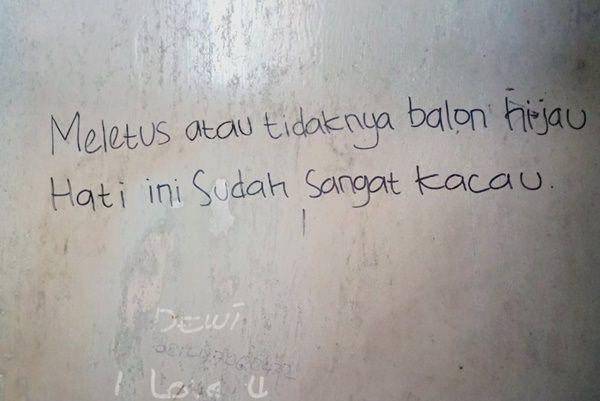 Meletus atau tidaknya balon hijau
Hati ini Sudah Sangat kacau.
DEWI
I Love U